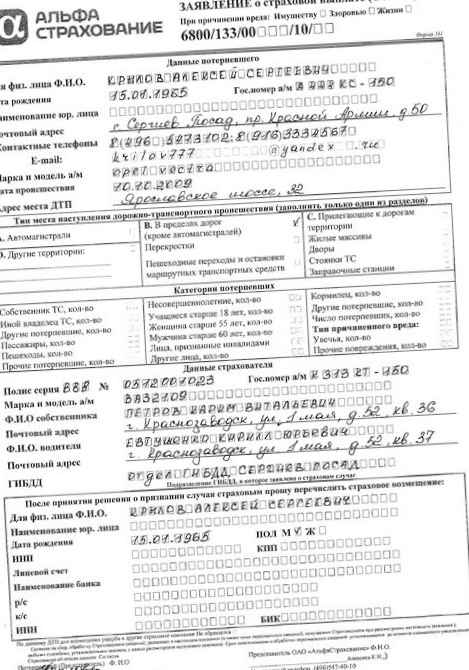 АЛЬФА СТРАХОВАНИЕ
ЗАЯВЛЕНИЕ о страховой
При причинении вреда: Имуществу □ Здоровью □ Жизни □
6800/133/00□□□/10/□□
Данные потерпевшего
для физ. лица Ф.И.О. КРЫЛОВ АЛЕКСЕЙ СЕРГЕЕВИЧ
дата рождения 15.01.1965 Гос.номер а/м А 777 КС - 150
Наименование юр. лица
Почтовый адрес г. Сергиев Посад, пр. Красной Армии, д. 50
Контактные телефоны 8(496) 5473102; 8(916)3334567
E-mail: krilov777 @yandex.ru
Марка и модель а/м opel vectra
дата происшествия 10.10.2009
Адрес места ДТП Ярославское шоссе, 32
Тип места наступления дорожно-транспортного происшествия (заполнить только один из разделов)
А. Автомагистрали
D. Другие территории:
В. В пределах дорог V
(кроме автомагистралей)
Перекрестки
Пешеходные переходы и остановки
маршрутных транспортных средств
С. Прилегающие к дорогам
территории
Жилые массивы
Дворы
Стоянки ТС
Заправочные станции
Категории потерпевших
Собственник ТС, кол-во
Иной владелец ТС, кол-во
Другие потерпевшие, кол-во
Пассажиры, кол-во
Пешеходы, кол-во
Прочие потерпевшие, кол-во
Несовершеннолетние, кол-во
Учащиеся старше 18 лет, кол-во
Женщина старше 55 лет, кол-во
Мужчина старше 60 лет, кол-во
Лица, признанные инвалидами
Другие лица, кол-во
Кормилец, кол-во
Другие потерпевшие, кол-во
Число потерпевших, кол-во
Тип причиненного вреда:
Увечья, кол-во
Прочие повреждения, кол-во
Данные страхователя
Полис серия ВВВ № 0512001023 Гос.номер а/м К 313 КТ - 150
Марка и модель а/м ВАЗ2109
Ф.И.О собственника ПЕТРОВ ВИТАЛЬЕВИЧ
Почтовый адрес г. Краснозаводск, ул. 1 мая, д. 52, кв. 36
Ф.И.О. водителя ЕВТУШЕНКО КИРИЛЛ ЮРЬЕВИЧ
Почтовый адрес г. Краснозаводск, ул. 1 мая, д. 52, кв. 37
ГИБДД отдел ГИБДД, СЕРГИЕВ ПОСАД
Подразделение ГИБДД, в которое заявлено о страховом случае
После принятия решения о признании случая страховым прошу перечислить страховое возмещение:
Для физ. лица Ф.И.О. КРЫЛОВ АЛЕКСЕЙ СЕРГЕЕВИЧ
Наименование юр. лица
Дата рождения 15.01.1965 ПОЛ М V Ж □
ИНН КПП
Лицевой счет
Наименование банка
р/с
к/с
ИНН БИК
Представитель ОАО «АльфаСтрахование» Ф.И.О.